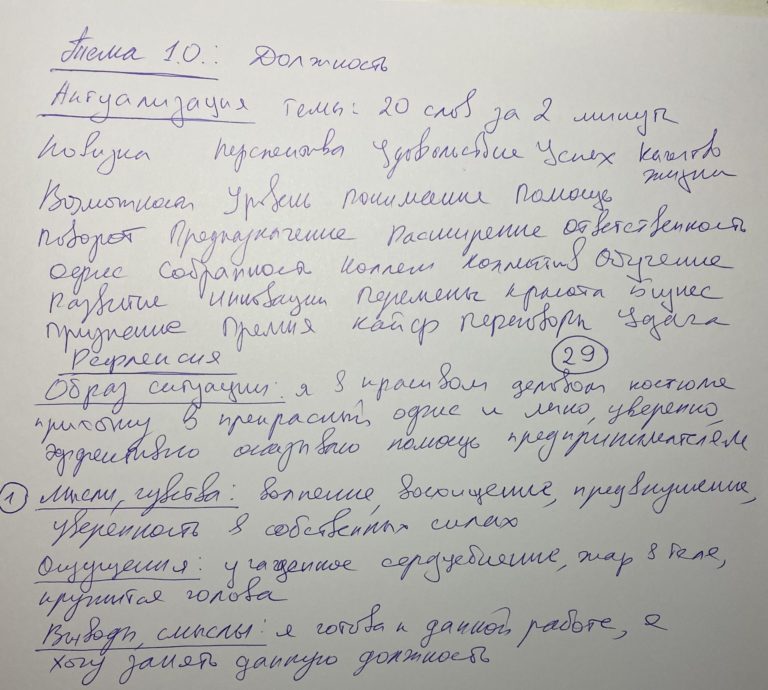 Тема 1.0.: Должность
Актуализация темы: 20 слов за 2 минуты
Новизна перспектива удовольствие успех качество
жизни
Возможность уровень понимание помощь
поворот предназначение расширение ответственность
офис собранность коллеги коллектив обучение
развитие инновации перемены красота бизнес
признание премия кайф переговоры удача
Рефлексия 29
Образ ситуации: я в красивом деловом костюме
прихожу в прекрасный офис и легко, уверенно,
эффективно оказываю помощь предпринимателям
1 Мысли, чувства: волнение, восхищение, предвкушение,
уверенность в собственных силах
Ощущения: учащенное сердцебиение, жар в теле,
кружится голова
Выводы, смыслы: я готова к данной работе, я
хочу занять данную должность